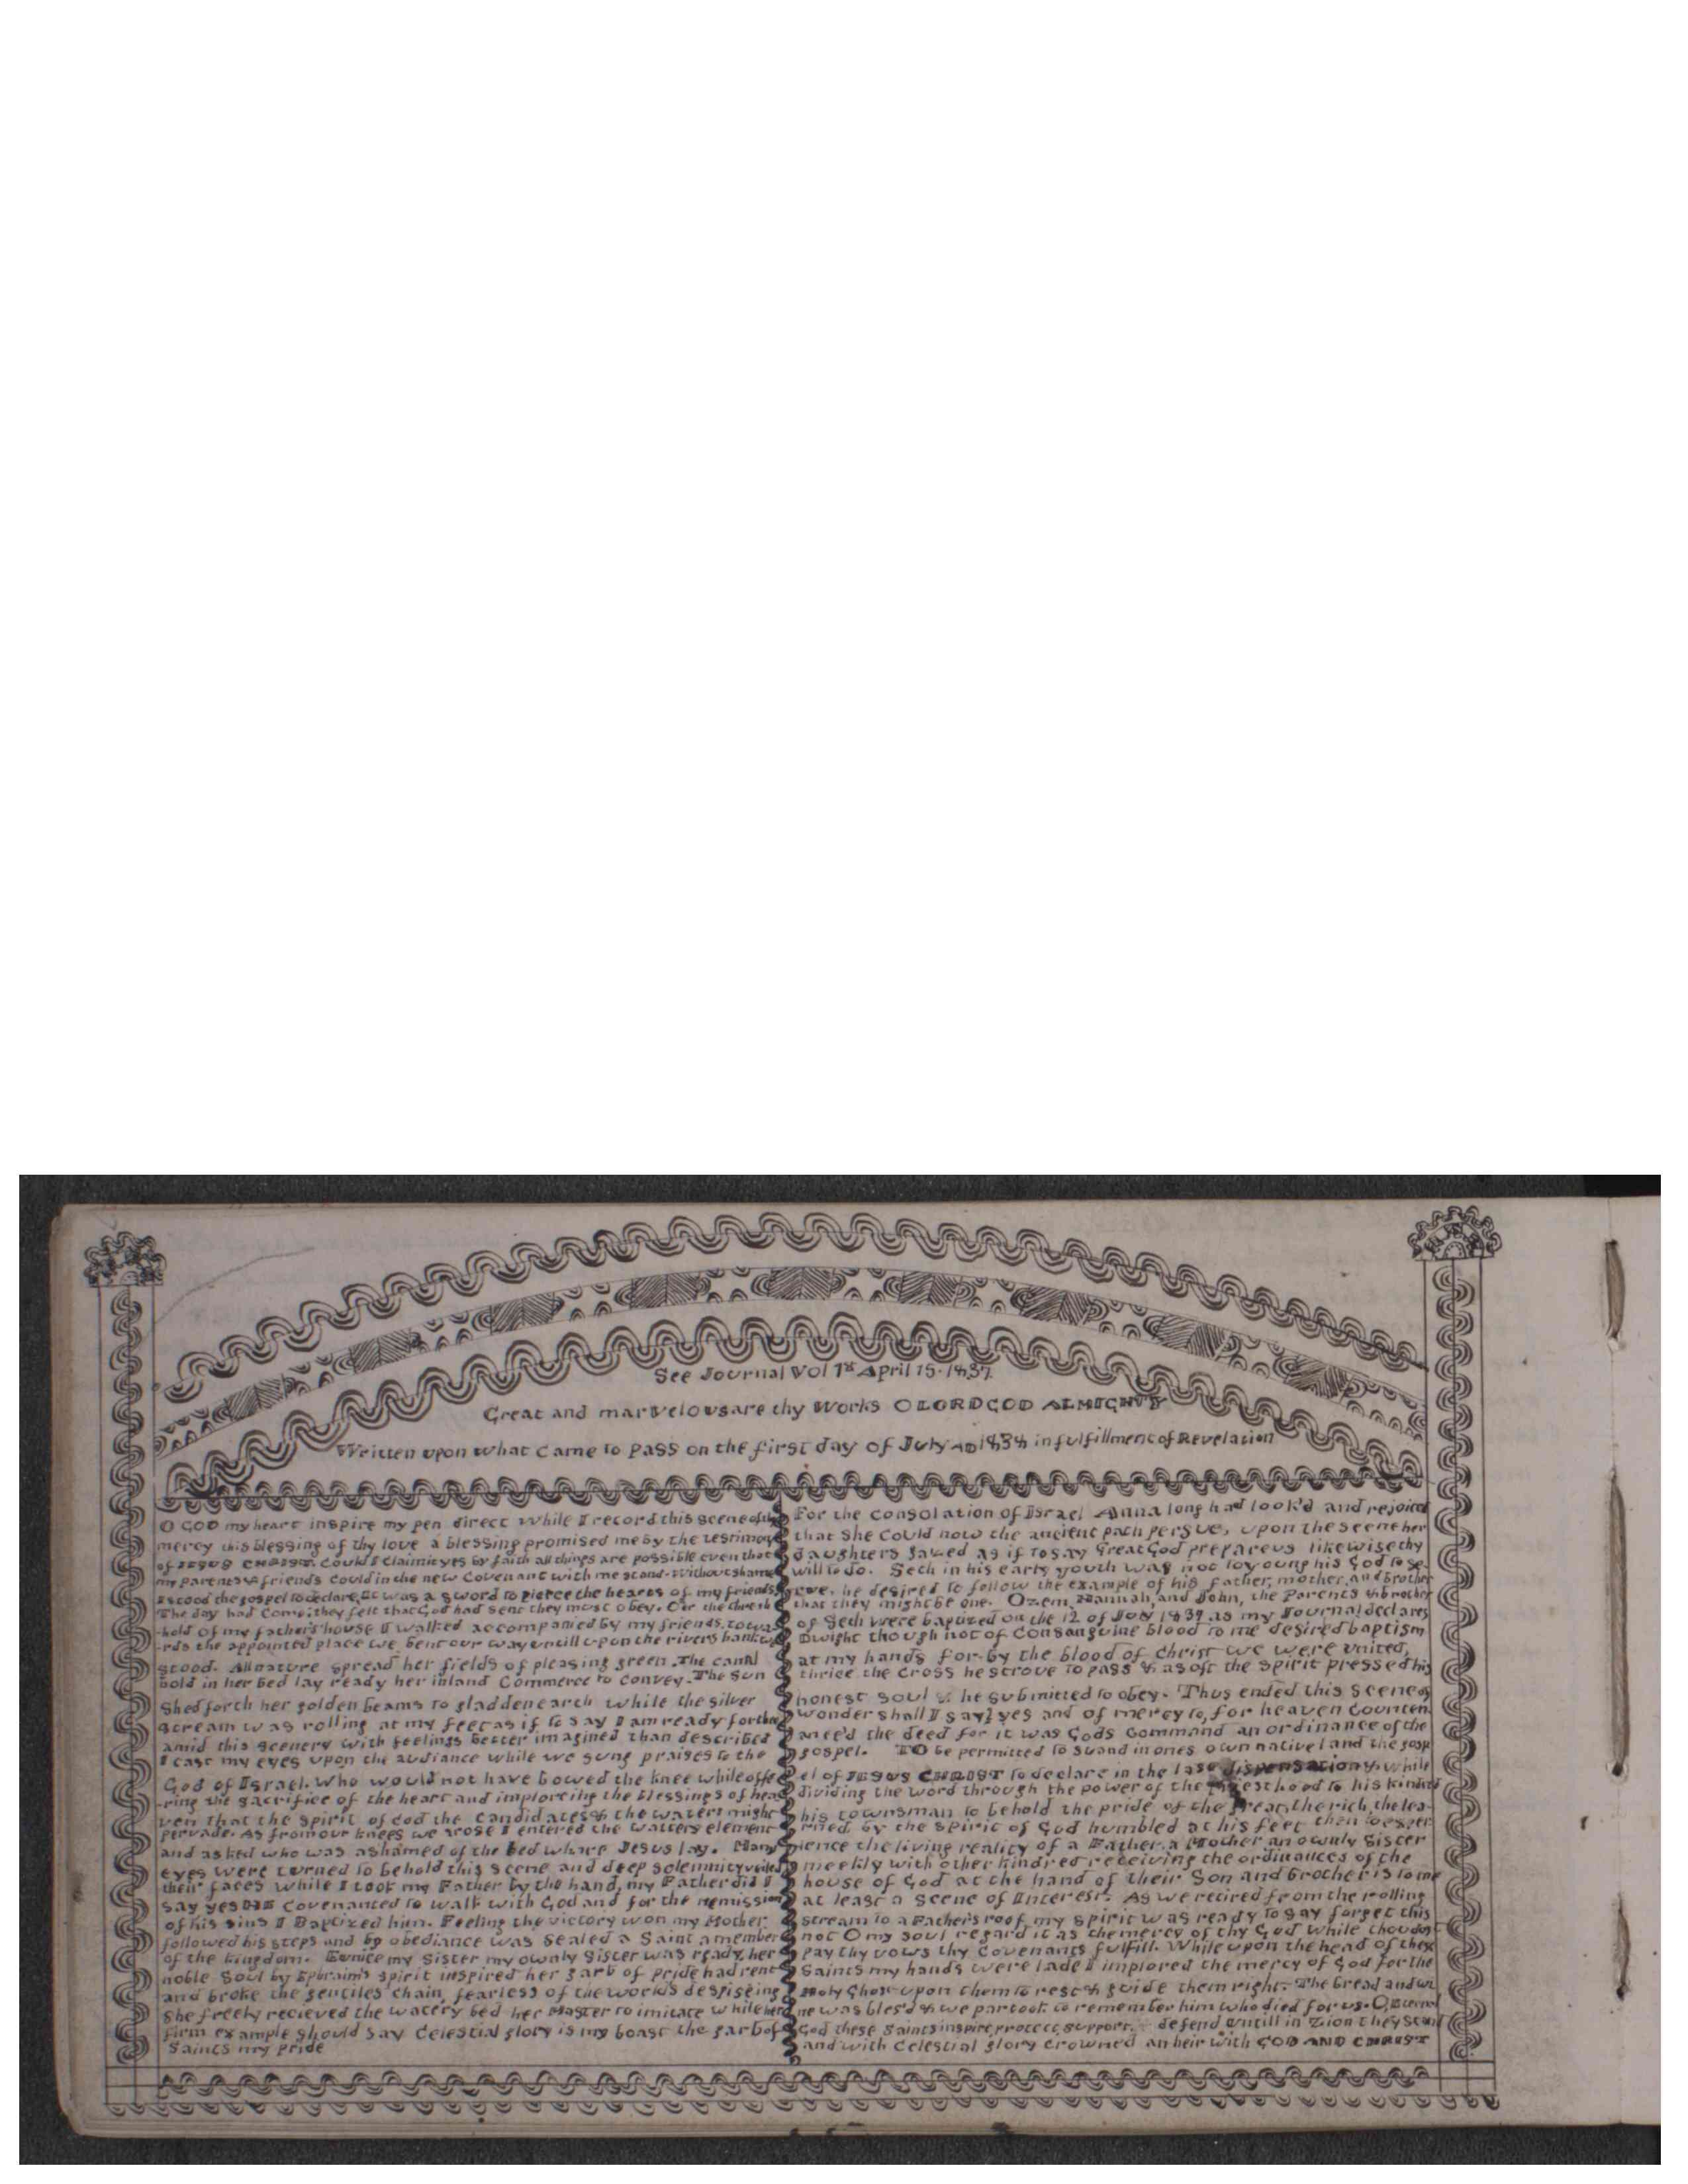 See Journal Vol 1st April 15. 1837
Great and marvelous are thy works O LORD GOD ALMIGHTY
Written upon what Came to pass on the first day of July AD 1838 in fulfillment of Revelation
O GOD my heart inspire my pen direct while I record this scene of thy
mercy this blessing of thy love a blessing promised me by the testimony
of JESUS CHRIST. Could I claim it yes by faith all things are possible even that
my parents & friends Could in the new Covenant with me stand. Without shame
I stood the gospel to declare, It was a sword to pierce the hearts of my friends,
The day had Come; they felt that God had sent they must obey. O'er the thresh
-hold of my father's house I walked accompanied by my friends, towa
-rds the appointed place we bent our way untill upon the rivers bank we
stood. All nature spread her fields of pleasing green. The canal
bold in her bed lay ready her inland Commerce to Convey. The Sun
Shed forth her golden beams to gladden earth while the silver
stream was rolling at my feet as if to say I am ready for thee
amid this scenery with feelings better imagined than described
I cast my eyes upon the audiance while we sung praises to the
God of Israel. Who would not have bowed the knee while offe
-ring the sacrifice of the heart and imploreing the blessings of hea
ven that the spirit of God the candidates & the waters might
pervade. As from our knees we arose I entered the watters element
and asked who was ashamed of the bed where Jesus lay. Many
eyes were turned to behold this scene and deep solemnity veiled
their faces while I took my Father by the hand, my Father did I
say yes HE Covenanted to walk with God and for the remission
of his sins I Baptized him. Feeling the victory won my Mother
followed his steps and by obediance was sealed a Saint a member
of the kingdom. Eunice my Sister my ownly Sister was ready, her
noble Soul by Ephraim's spirit inspired her garb of pride had rent
and broke the gentiles chain, fearless of the worlds despiseing
She freely recieved the watery bed her Master to imitate while her
firm example should say Celestial glory is my boast the garb of
Saints my pride
For the Consolation of Israel Anna long had look'd and rejoiced
that She Could now the ancient path persue, upon the scene her
daughters gazed as if to say Great God prepare us likewise thy
will to do. Seth in his early youth was not to young his God to se-
-rve, he desired to follow the example of his father, mother, and brother
that they might be one. Ozem, Hannah, and John, the Parents & brother
of Seth were baptized on the 12 of July 1837 as my Journal declares
Dwight though not of Consanguine blood to me desired baptism
at my hands for by the blood of Christ we were united,
thrice the Cross he strove to pass & as oft the spirit pressed his
honest soul & he submitted to obey. Thus ended this scene of
wonder shall I say? yes and of mercy to, for heaven Counten
ance'd the deed for it was Gods Command an ordinance of the
gospel. TO be permitted to stand in ones own native land the gosp
el of JESUS CHRIST to declare in the last dispensation, & while
dividing the word through the power of the Priesthood to his kindred
his townsman to behold the pride of the great, the rich, the lea-
rned by the Spirit of God humbled at his feet then to exper
ience the living reality of a Father, a Mother an ownly Sister
meekly with other kindred receiving the ordinances of the
house of God at the hand of their Son and brother is to me
at least a scene of Interest. As we retired from the rolling
stream to a Father's roof my spirit was ready to say forget this
not O my soul regard it as the mercy of thy God while thou dost
pay thy vows thy Covenants fulfill. While upon the head of these
Saints my hands were lade I implored the mercy of God for the
Holy Ghost upon them to rest & guide them right. The bread and wi
ne was bles'd & we partook to remember him who died for us. O, Eternal
God these Saints inspire, protect, support, defend untill in Zion they stand
and with Celestial glory Crowned an heir with GOD AND CHRIST